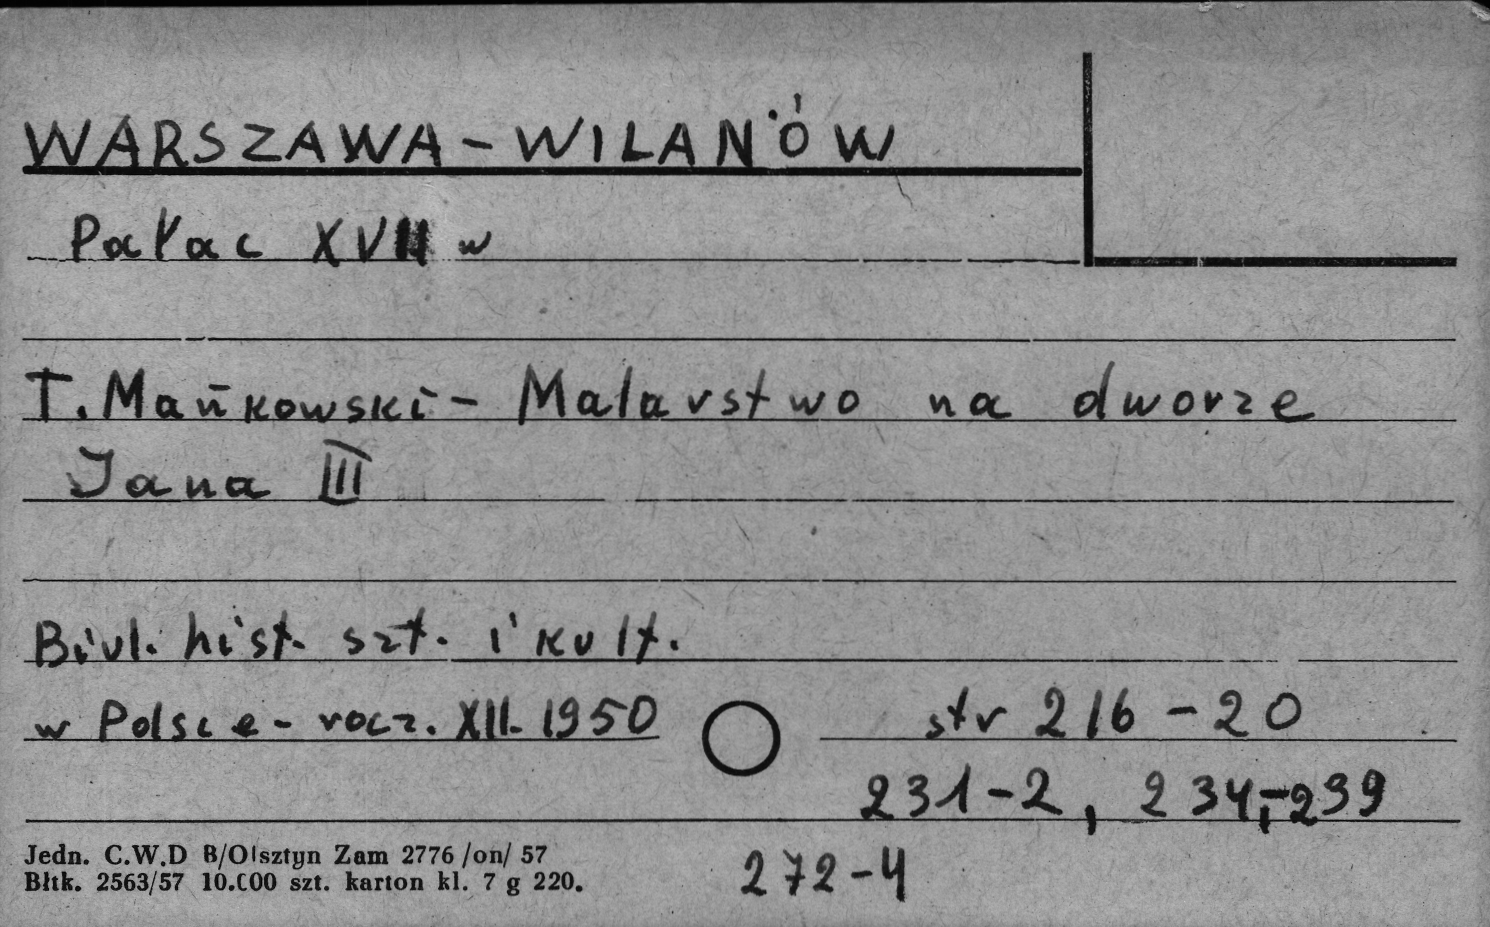 WARSZAWA - WILANÓW
Pałac XVII w
T. Mańkowski - Malarstwo na dworze
Jana III
Biul. hist. szt. i kult.
w Polsce - rocz. XII. 1950
str 216 - 20
231 - 2, 234, - 239
272 - 4
Jedn. C.W.D B/Olsztyn Zam 2776 /on/ 57
Błtk. 2563/57 10.000 szt. karton kl. 7 g 220.